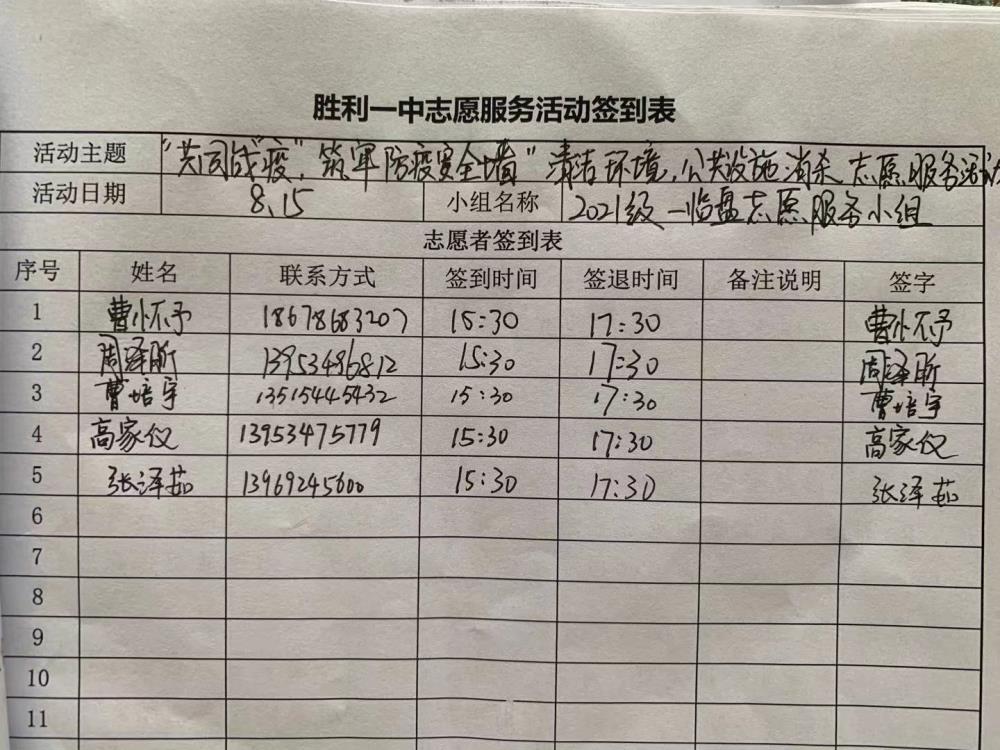 胜利一中志愿服务活动签到表
活动主题 "共同战"疫",筑牢防疫安全墙"清洁环境,公共设施消杀志愿服务活动
活动日期 8.15 小组名称 2021级一临盘志愿服务小组
志愿者签到表
序号 姓名 联系方式 签到时间 签退时间 备注说明 签字
1 曹怀予 18678683207 15:30 17:30 曹怀予
2 周泽昕 13953496812 15:30 17:30 周泽昕
3 曹培宇 13515445432 15:30 17:30 曹培宇
4 高家仪 13953475779 15:30 17:30 高家仪
5 张泽茹 13969245600 15:30 17:30 张泽茹
6
7
8
9
10
11